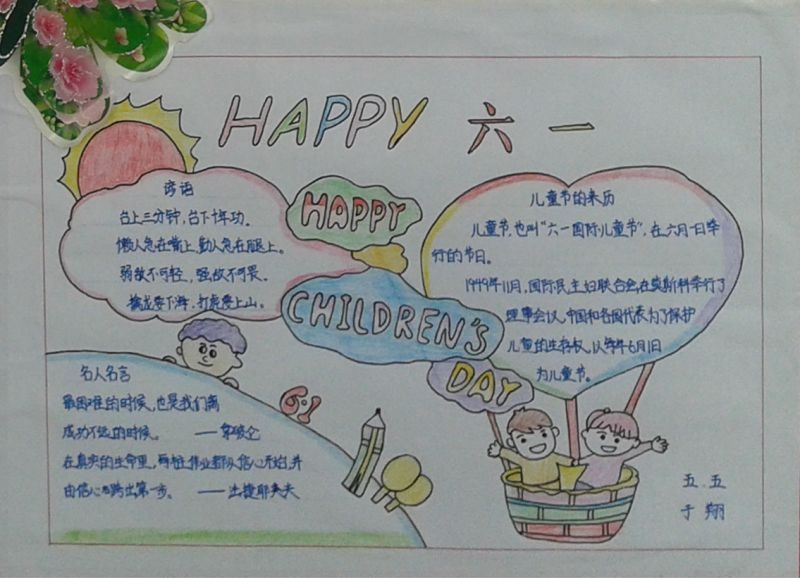 HAPPY 六一
谚语
台上三分钟，台下十年功。
懒人急在嘴上，勤人急在腿上。
弱敌不可轻，强敌不可畏。
擒龙要下海，打虎要上山。
HAPPY
CHILDREN'S
DAY
儿童节的来历
儿童节，也叫"六一国际儿童节"，在六月一日举
行的节日。
1949年11月，国际民主妇联合会在莫斯科举行了
理事会议，中国和各国代表为了保护
儿童的生存权，以每年6月1日
为儿童节。
名人名言
最困难的时候，也是我们离
成功不远的时候。 ——拿破仑
在真实的生命里，每桩伟业都从信心开始，并
由信心跨出第一步。 ——
6·1
五.五
于翔